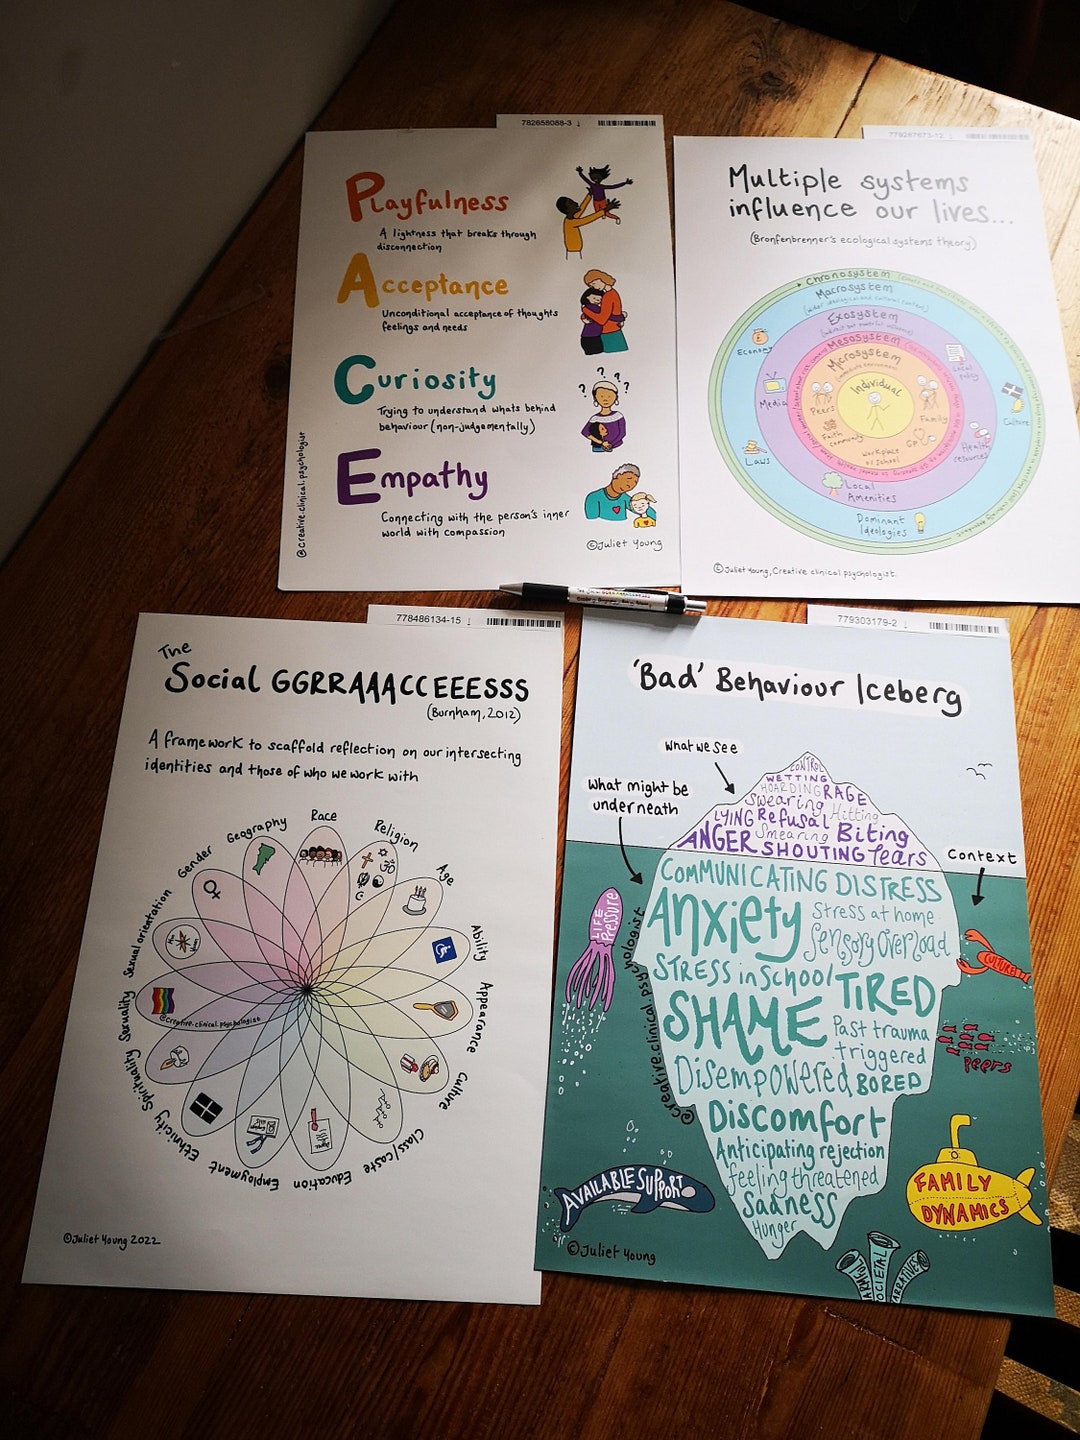 782658088-3 ↓
Playfulness
A lightness that breaks through
disconnection
Acceptance
Unconditional acceptance of thoughts
feelings and needs
Curiosity
Trying to understand whats behind
behaviour (non-judgementally)
Empathy
Connecting with the person's inner
world with compassion
©Juliet Young
@creative.clinical.psychologist
779267673-12 ↓
Multiple systems
influence our lives...
(Bronfenbrenner's ecological systems theory)
Chronosystem
Macrosystem
Exosystem
Mesosystem
Microsystem
Individual
Peers
Family
Faith
community
GP
Workplace
or school
Economy
Media
Laws
Local
policy
Culture
Health
resources
Local
Amenities
Dominant
Ideologies
©Juliet Young, Creative clinical psychologist.
778486134-15 ↓
The
Social GGRRAAACCEEESSS
(Burnham, 2012)
A framework to scaffold reflection on our intersecting
identities and those of who we work with
Race
Religion
Age
Ability
Appearance
Culture
Class/caste
Education
Employment
Ethnicity
Spirituality
Sexuality
Sexual orientation
Gender
Geography
@creative.clinical.psychologist
©Juliet Young 2022
779303179-2 ↓
'Bad' Behaviour Iceberg
What we see
What might be
underneath
Context
CONTROL
WETTING
HOARDING RAGE
Swearing Hitting
LYING Refusal
Smearing Biting
ANGER SHOUTING Tears
COMMUNICATING DISTRESS
Anxiety
Stress at home
Sensory Overload
STRESS in School
TIRED
SHAME
Past trauma
triggered
Disempowered BORED
Discomfort
Anticipating rejection
feeling threatened
Sadness
Hunger
LIFE
Pressure
CULTURE
Peers
AVAILABLE SUPPORT
FAMILY
DYNAMICS
SOCIETAL
NARRATIVES
@creative.clinical.psychologist
©Juliet Young